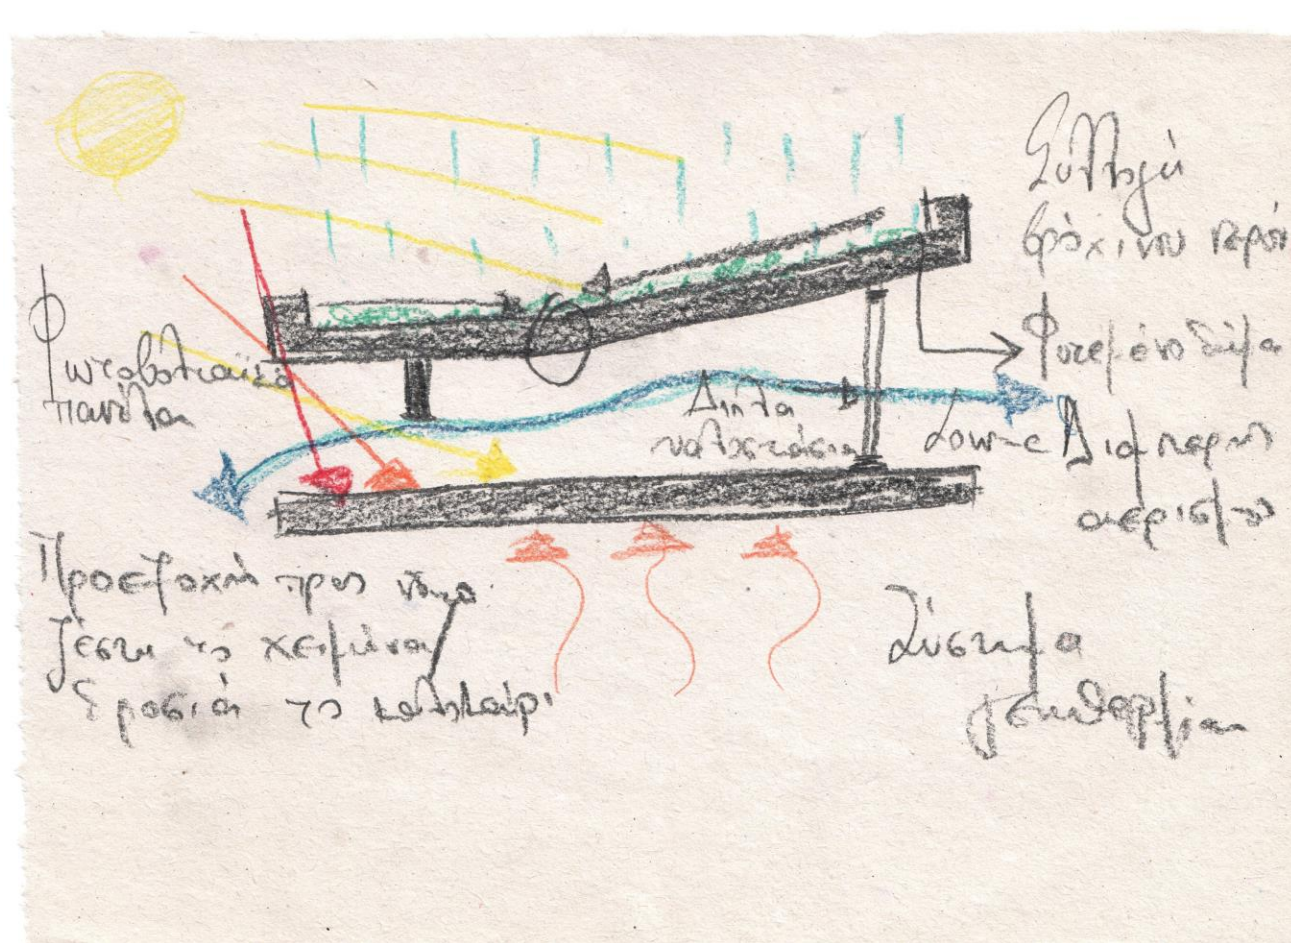 Συλλογή
βρόχινου νερού
Φωτοβολταϊκά
πανέλα
Φυτεμένο δώμα
Διπλά
υαλοστάσια
Low-e
Διαμπερής
αερισμός
Προεξοχή προς νότο
ζέστη το χειμώνα/
δροσιά το καλοκαίρι
Σύστημα
γεωθερμίας